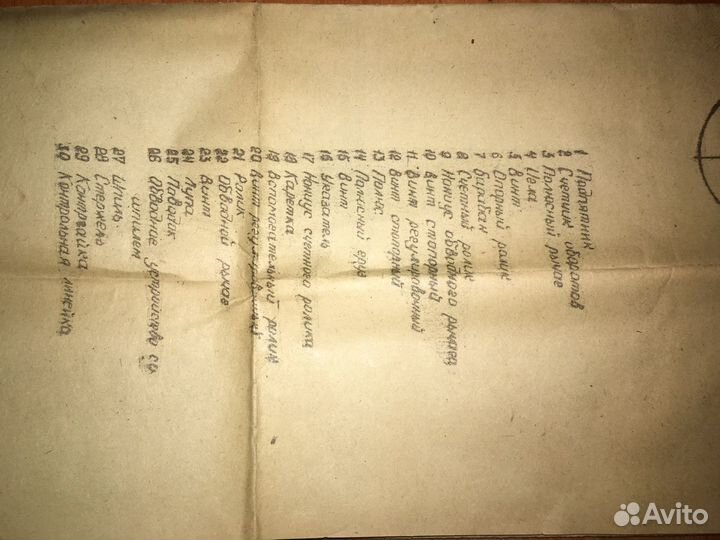 1 Подпятник
2 Счетчик оборотов
3 Полюсный рычаг
4 Игла
5 Винт
6 Опорный ролик
7 Барабан
8 Счетный ролик
9 Нониус обводного рычага
10 Винт стопорный
11 Винт регулировочный
12 Винт стопорный
13 Полюс
14 Полюсный груз
15 Винт
16 Указатель
17 Нониус счетного ролика
18 Каретка
19 Вспомогательный ролик
20 Винт регулировочный
21 Ролик
22 Обводной рычаг
23 Винт
24 Лупа
25 Поводок
26 Обводное устройство со
шпилем
27 Шпиль
28 Стержень
29 Контргайка
30 Контрольная линейка
Avito